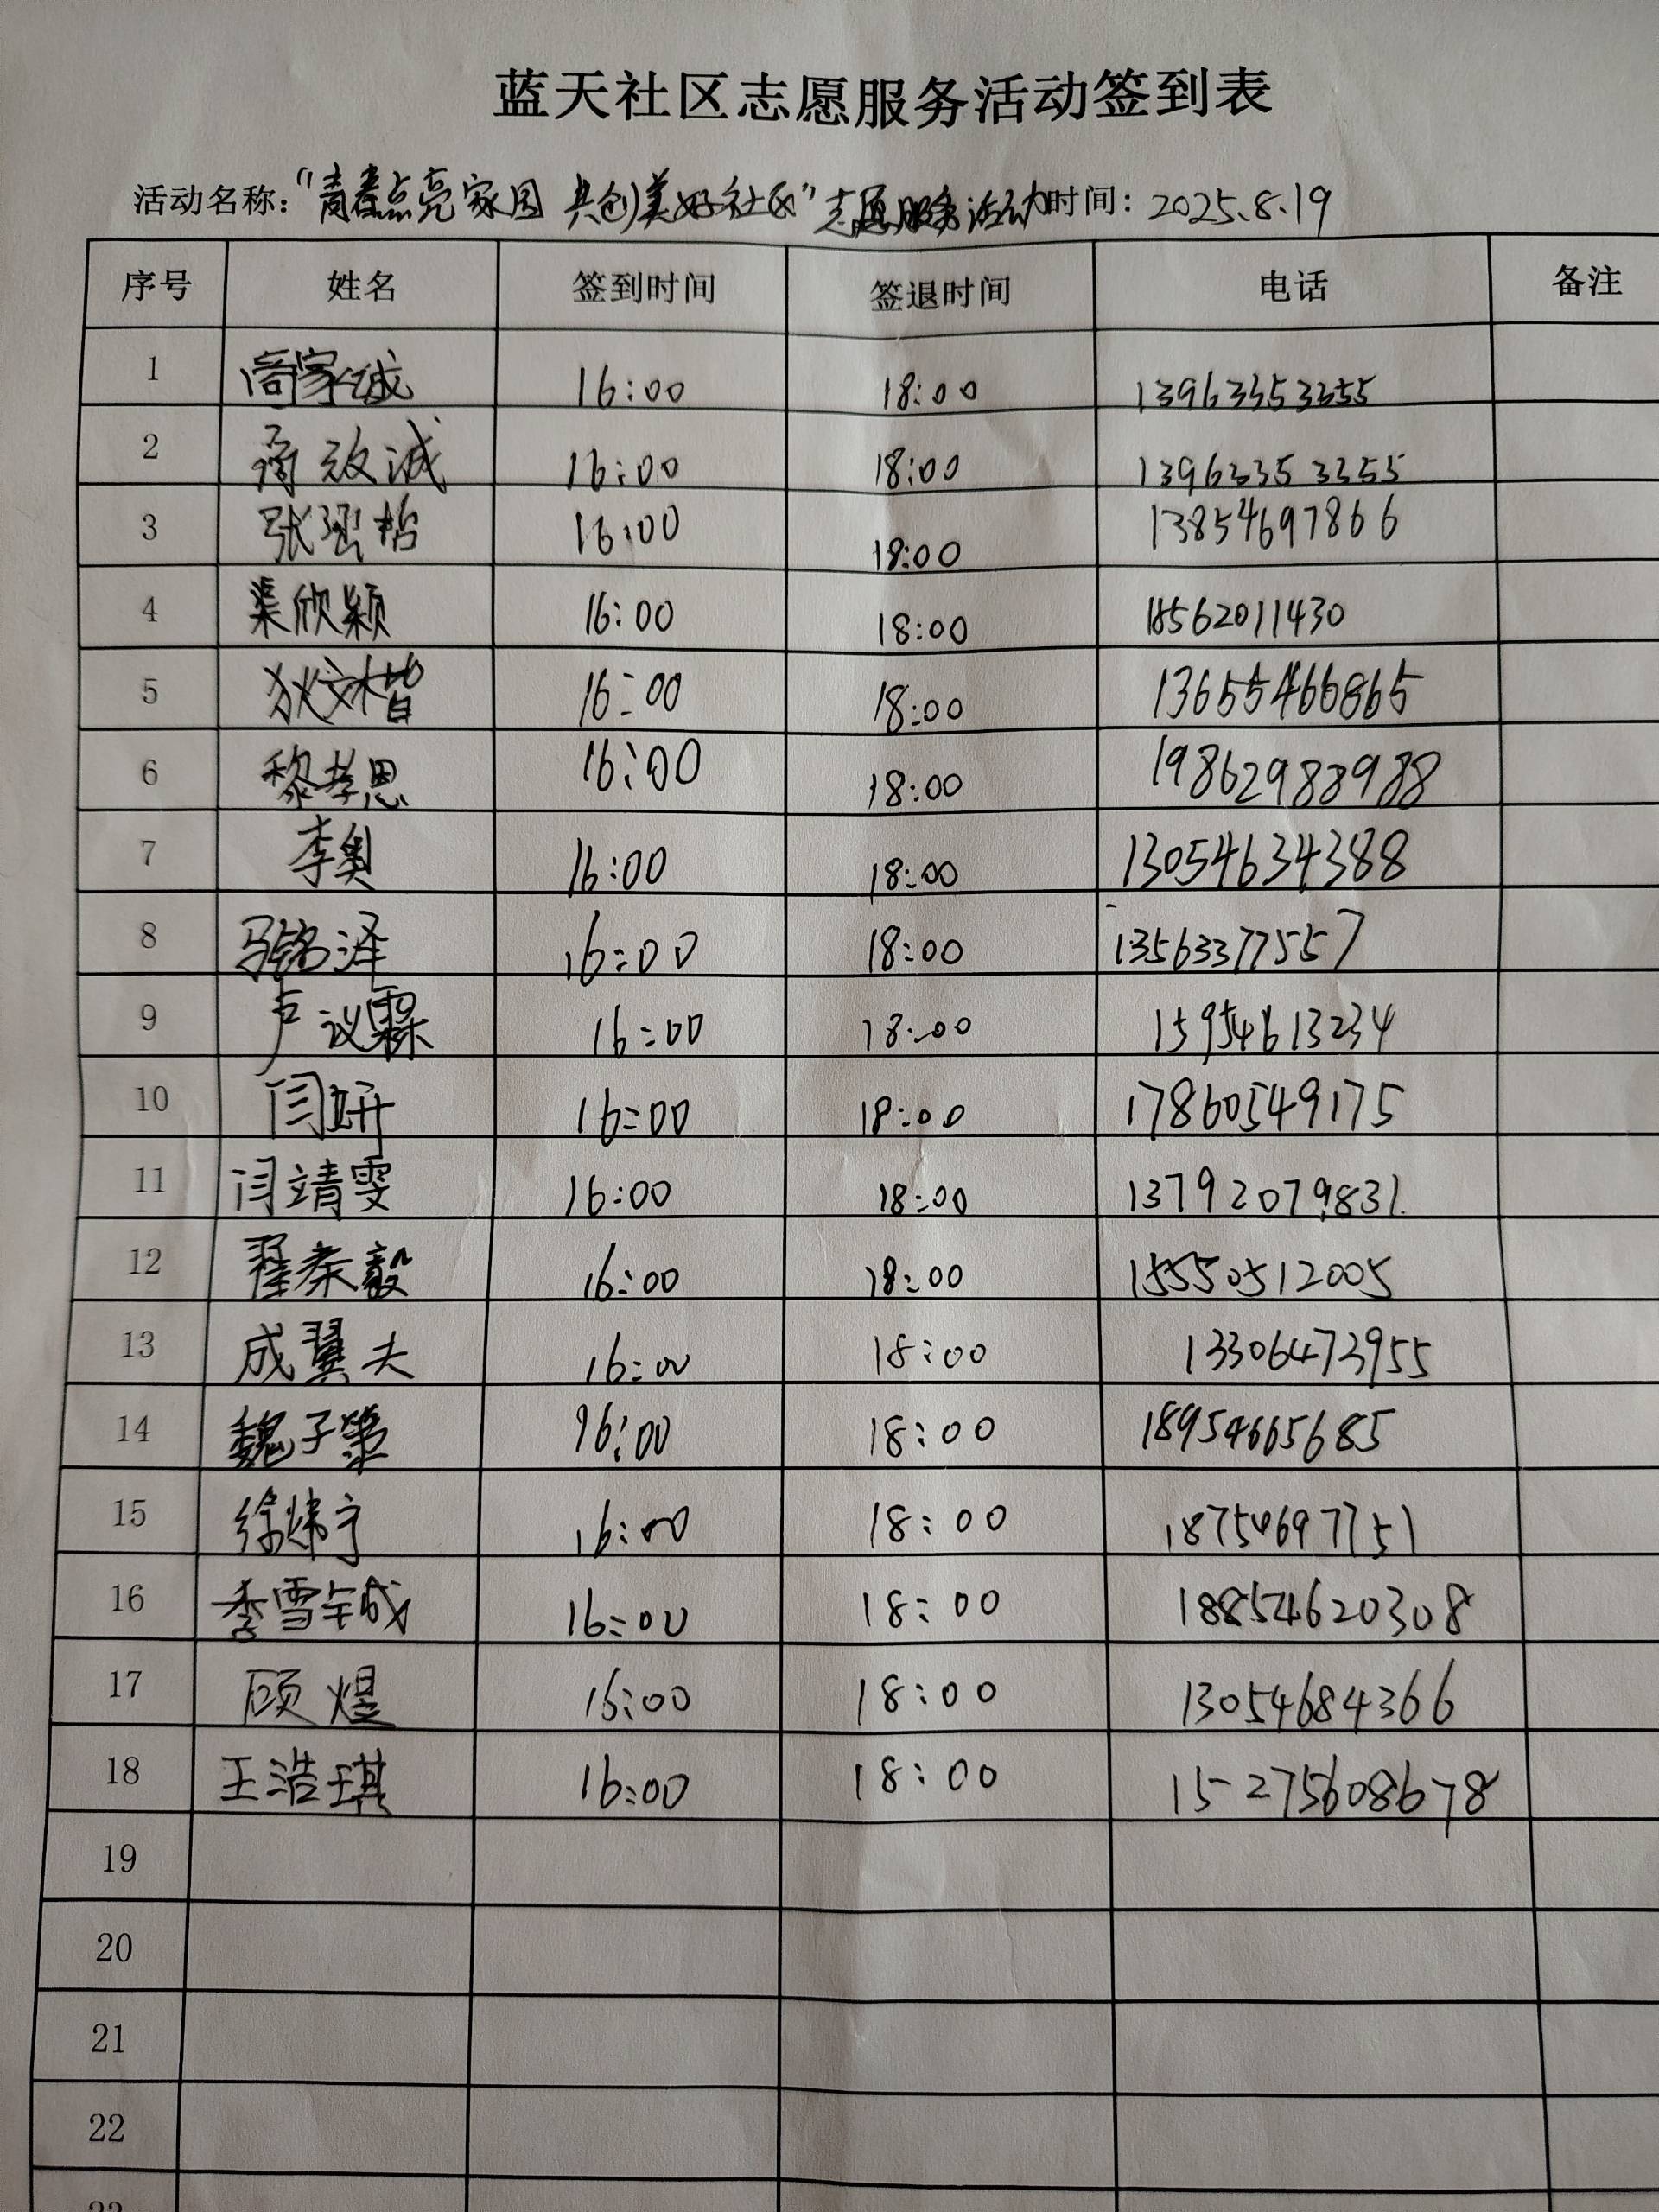 蓝天社区志愿服务活动签到表
活动名称:“青春点亮家园 共创美好社区”志愿服务活动时间: 2025.8.19
序号 姓名 签到时间 签退时间 电话 备注
1 商家诚 16:00 18:00 13963353355
2 商致诚 16:00 18:00 13963353355
3 张珺哲 16:00 18:00 13854697866
4 渠欣颖 16:00 18:00 18562011430
5 狄文楷 16:00 18:00 13655466865
6 黎孝恩 16:00 18:00 19862983988
7 李奥 16:00 18:00 13054634388
8 马铭泽 16:00 18:00 13563377557
9 卢议霖 16:00 18:00 15954613234
10 闫妍 16:00 18:00 17860549175
11 闫靖雯 16:00 18:00 13792079831
12 翟秦毅 16:00 18:00 15550512005
13 成翼夫 16:00 18:00 13306473955
14 魏子 16:00 18:00 18954665685
15 徐炜宁 16:00 18:00 18754697751
16 季雪铖 16:00 18:00 18854620308
17 顾煜 16:00 18:00 13054684366
18 王浩琪 16:00 18:00 15275608678
19
20
21
22